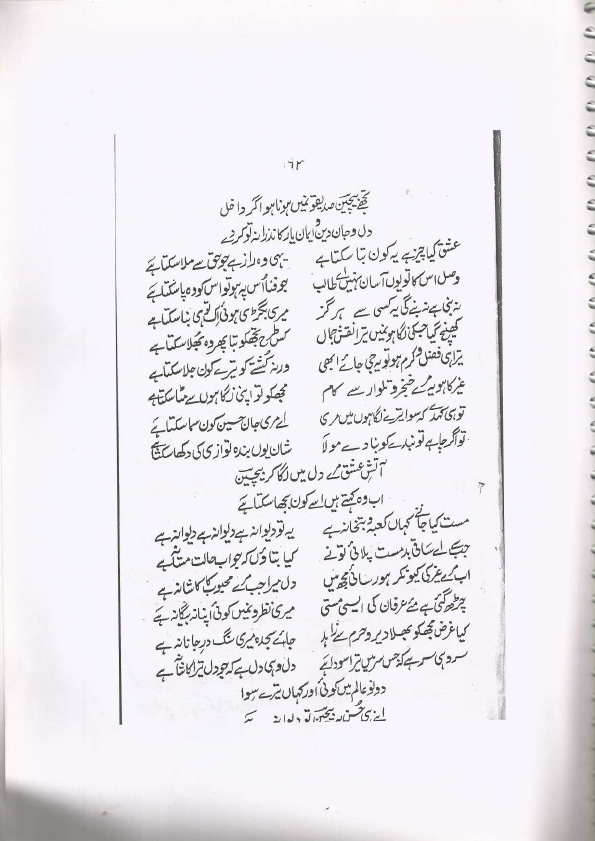 ۶۲
تجھے بیچین صدیقوں میں ہونا ہو اگر داخل
دل و جان دین و ایمان یار کا نذرانہ تو کر دے
عشق کیا چیز ہے یہ کون بتا سکتا ہے یہی وہ راز ہے جو حق سے ملا سکتا ہے
وصل اس کا تو یوں آسان نہیں اے طالب جو فنا اس پہ ہو تو اس کو وہ پا سکتا ہے
نہ بنی ہے نہ بنے گی یہ کسی سے ہر گز میری بگڑی ہوئی اک تو ہی بنا سکتا ہے
کھنچ گیا جسکی نگاہوں میں ترا نقش جمال کس طرح تجھکو بتا پھر وہ بھلا سکتا ہے
تیرا ہی فضل و کرم ہو تو یہ جی جائے ابھی ورنہ کشتے کو ترے کون جلا سکتا ہے
غیر کا ہو یہ مرے خنجر و تلوار سے کام مجھکو تو اپنی نگاہوں سے مٹا سکتا ہے
تو ہی کہدے کہ سوا تیرے نگاہوں میں مری اے مری جان حسین کون سما سکتا ہے
تو اگر چاہے تو بندے کو بنا دے مولا شان یوں بندہ نوازی کی دکھا سکتا ہے
آتش عشق مرے دل میں لگا کر بیچین
اب وہ کہتے ہیں اسے کون بجھا سکتا ہے
مست کیا جانے کہاں کعبہ و بتخانہ ہے یہ تو دیوانہ ہے دیوانہ ہے دیوانہ ہے
جب سے اے ساقی بدمست پلائی تو نے کیا بتاؤں کہ جو اب حالت مستانہ ہے
اب مرے غیر کی کیونکر ہو رسائی مجھ میں دل میرا جب مرے محبوب کا کاشانہ ہے
چڑھ گئی ہے مئے عرفان کی ایسی مستی میری نظروں میں کوئی اپنا نہ بیگانہ ہے
کیا غرض مجھکو بھلا دیر و حرم سے زاہد جائے سجدہ میری سنگ در جانانہ ہے
سر وہی سر ہے کہ جس سر میں ترا سودا ہے دل وہی دل ہے کہ جو دل ترا کاشانہ ہے
دونو عالم میں کوئی اور کہاں تیرے سوا
اپنے ہی حسن پہ بیچین تو دیوانہ ہے